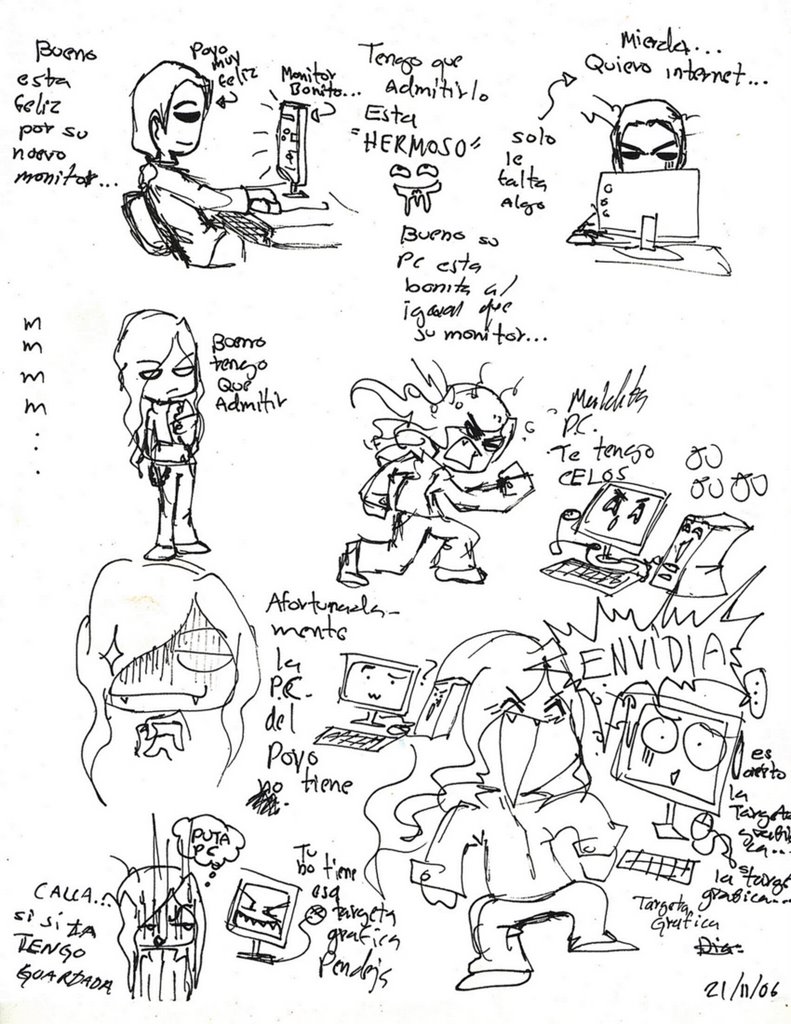 Bueno
esta
feliz
por su
nuevo
monitor...
Poyo
muy
feliz
Monitor
Bonito...
Tengo que
Admitirlo
Esta
"HERMOSO"
Bueno su
PC esta
bonita al
igual que
su monitor...
Mierda...
Quiero internet...
solo
le
falta
Algo
m
m
m
m
.
.
.
Bueno
tengo
Que
Admitir
Maldita
P.C.
Te tengo
CELOS
Afortunada-
mente
la
PC.
del
Poyo
no tiene
ENVIDIA
es
cierto
la
Targeta
grafica...
la targeta
grafica...
Targeta
Grafica
PUTA
PC
CALLA...
si si la
TENGO
GUARDADA
Tu
no tiene
esa
targeta
grafica
Pendeja
21/11/06